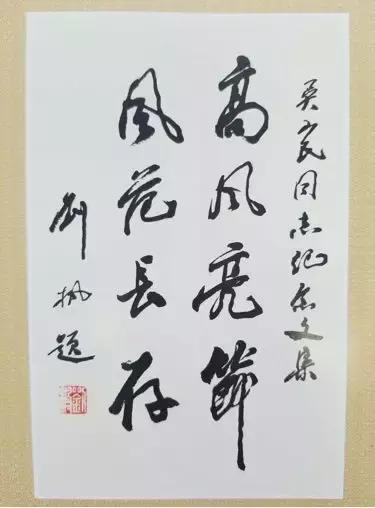 吴宪同志纪念文集
高风亮節
风范长存
刘枫题